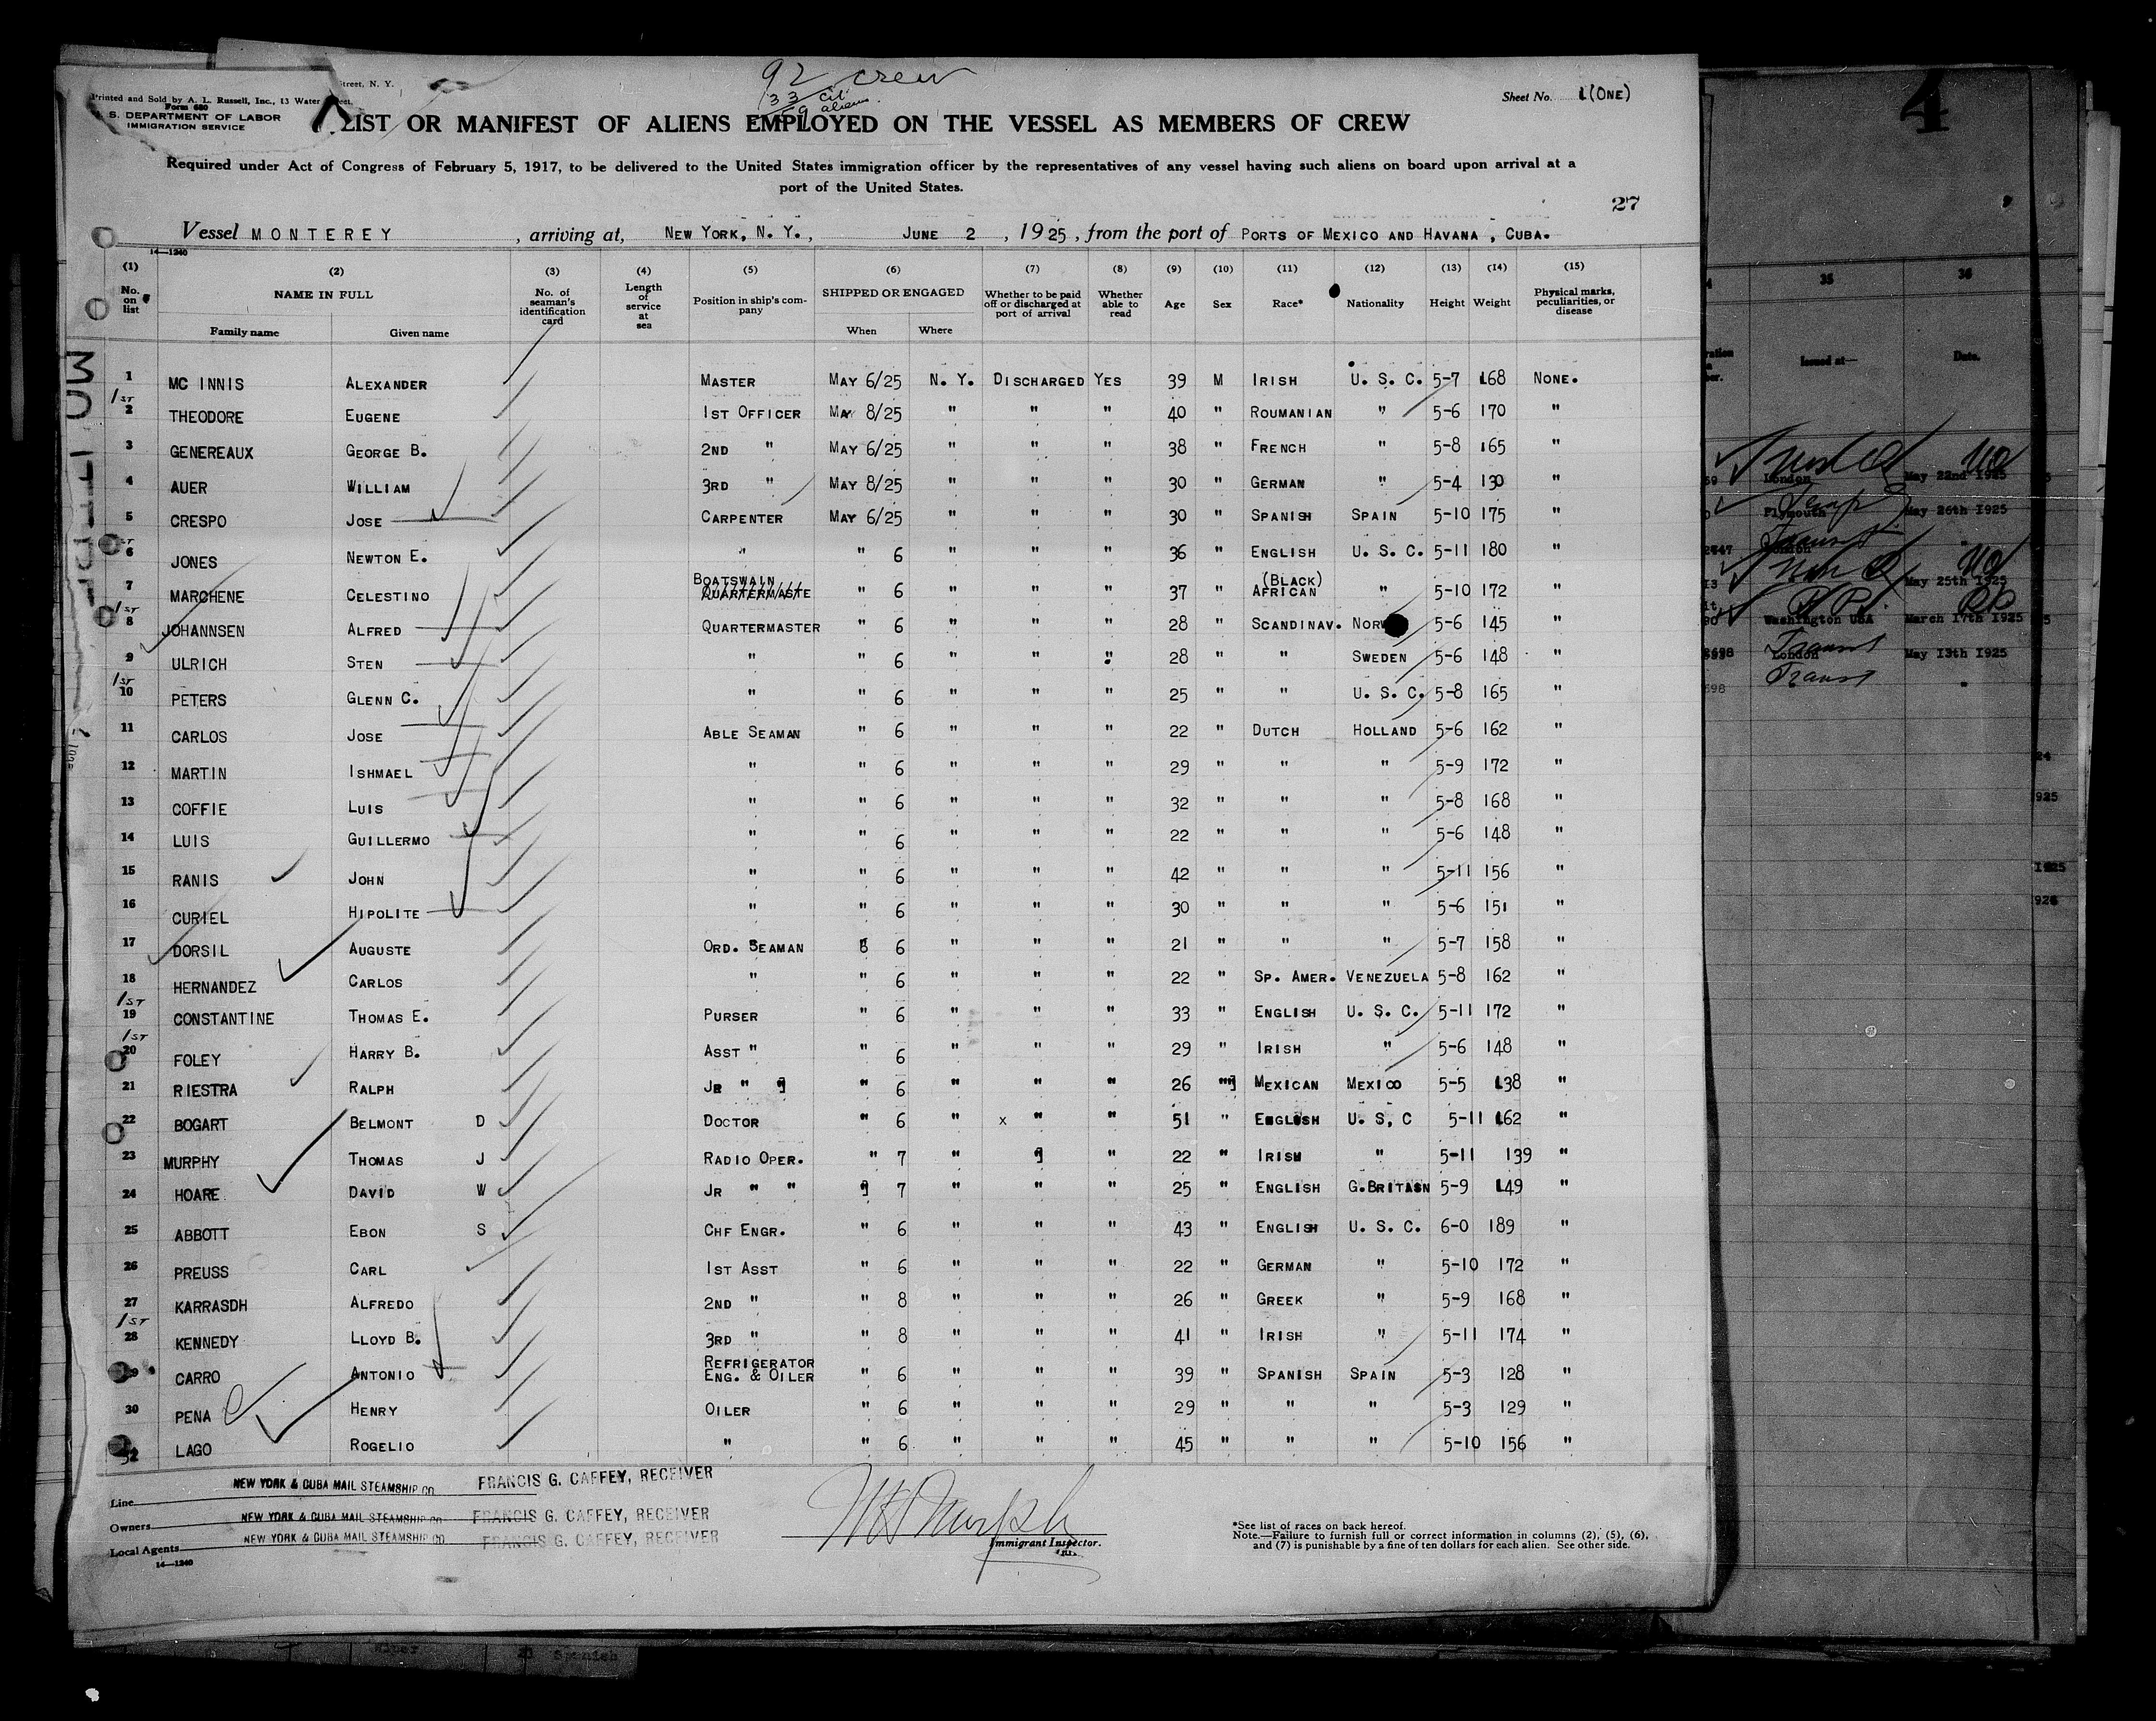 92 crew
33 cit
59 aliens
Street, N. Y.
Printed and Sold by A. L. Russell, Inc., 13 Water Street
Form 680
S. DEPARTMENT OF LABOR
IMMIGRATION SERVICE
Sheet No. 1 (ONE)
4
LIST OR MANIFEST OF ALIENS EMPLOYED ON THE VESSEL AS MEMBERS OF CREW
Required under Act of Congress of February 5, 1917, to be delivered to the United States immigration officer by the representatives of any vessel having such aliens on board upon arrival at a
port of the United States.
27
Vessel MONTEREY, arriving at, NEW YORK, N. Y., JUNE 2, 1925, from the port of PORTS OF MEXICO AND HAVANA, CUBA.
14—1240
(1) (2) (3) (4) (5) (6) (7) (8) (9) (10) (11) (12) (13) (14) (15)
No. on list NAME IN FULL Family name Given name No. of seaman's identification card Length of service at sea Position in ship's company SHIPPED OR ENGAGED When Where Whether to be paid off or discharged at port of arrival Whether able to read Age Sex Race* Nationality Height Weight Physical marks, peculiarities, or disease
1 MC INNIS ALEXANDER MASTER MAY 6/25 N. Y. DISCHARGED YES 39 M IRISH U. S. C. 5-7 168 NONE.
1st
2 THEODORE EUGENE 1ST OFFICER MAY 8/25 " " " 40 " ROUMANIAN " 5-6 170 "
3 GENEREAUX GEORGE B. 2ND " MAY 6/25 " " " 38 " FRENCH " 5-8 165 "
4 AUER WILLIAM 3RD " MAY 8/25 " " " 30 " GERMAN " 5-4 130 "
5 CRESPO JOSE CARPENTER MAY 6/25 " " " 30 " SPANISH SPAIN 5-10 175 "
6 JONES NEWTON E. " " 6 " " " 36 " ENGLISH U. S. C. 5-11 180 "
7 MARCHENE CELESTINO BOATSWAIN QUARTERMASTE " 6 " " " 37 " (BLACK) AFRICAN " 5-10 172 "
1st
8 JOHANNSEN ALFRED QUARTERMASTER " 6 " " " 28 " SCANDINAV. NORW 5-6 145 "
9 ULRICH STEN " " 6 " " " 28 " " SWEDEN 5-6 148 "
1st
10 PETERS GLENN C. " " 6 " " " 25 " " U. S. C. 5-8 165 "
11 CARLOS JOSE ABLE SEAMAN " 6 " " " 22 " DUTCH HOLLAND 5-6 162 "
12 MARTIN ISHMAEL " " 6 " " " 29 " " " 5-9 172 "
13 COFFIE LUIS " " 6 " " " 32 " " " 5-8 168 "
14 LUIS GUILLERMO " " 6 " " " 22 " " " 5-6 148 "
15 RANIS JOHN " " 6 " " " 42 " " " 5-11 156 "
16 CURIEL HIPOLITE " " 6 " " " 30 " " " 5-6 151 "
17 DORSIL AUGUSTE ORD. SEAMAN 8 6 " " " 21 " " " 5-7 158 "
18 HERNANDEZ CARLOS " " 6 " " " 22 " SP. AMER. VENEZUELA 5-8 162 "
1st
19 CONSTANTINE THOMAS E. PURSER " 6 " " " 33 " ENGLISH U. S. C. 5-11 172 "
1st
20 FOLEY HARRY B. ASST " " 6 " " " 29 " IRISH " 5-6 148 "
21 RIESTRA RALPH JR " " 6 " " " 26 " MEXICAN MEXICO 5-5 138 "
22 BOGART BELMONT D DOCTOR " 6 " x " " 51 " ENGLISH U. S, C 5-11 162 "
23 MURPHY THOMAS J RADIO OPER. " 7 " " " 22 " IRISH " 5-11 139 "
24 HOARE DAVID W JR " " " 7 " " " 25 " ENGLISH G.BRITASN 5-9 149 "
25 ABBOTT EBON S CHF ENGR. " 6 " " " 43 " ENGLISH U. S. C. 6-0 189 "
26 PREUSS CARL 1ST ASST " 6 " " " 22 " GERMAN " 5-10 172 "
27 KARRASDH ALFREDO 2ND " " 8 " " " 26 " GREEK " 5-9 168 "
1st
28 KENNEDY LLOYD B. 3RD " " 8 " " " 41 " IRISH " 5-11 174 "
CARRO ANTONIO REFRIGERATOR ENG. & OILER " 6 " " " 39 " SPANISH SPAIN 5-3 128 "
30 PENA HENRY OILER " 6 " " " 29 " " " 5-3 129 "
LAGO ROGELIO " " 6 " " " 45 " " " 5-10 156 "
Line NEW YORK & CUBA MAIL STEAMSHIP CO FRANCIS G. CAFFEY, RECEIVER
Owners NEW YORK & CUBA MAIL STEAMSHIP CO FRANCIS G. CAFFEY, RECEIVER
Local Agents NEW YORK & CUBA MAIL STEAMSHIP CO FRANCIS G. CAFFEY, RECEIVER
14—1240
Immigrant Inspector.
*See list of races on back hereof.
Note.—Failure to furnish full or correct information in columns (2), (5), (6),
and (7) is punishable by a fine of ten dollars for each alien. See other side.
35 36
Issued at— Date.
London May 22nd 1925
Plymouth May 26th 1925
May 25th 1925
Washington USA March 17th 1925
London May 13th 1925
Transit
Spanish